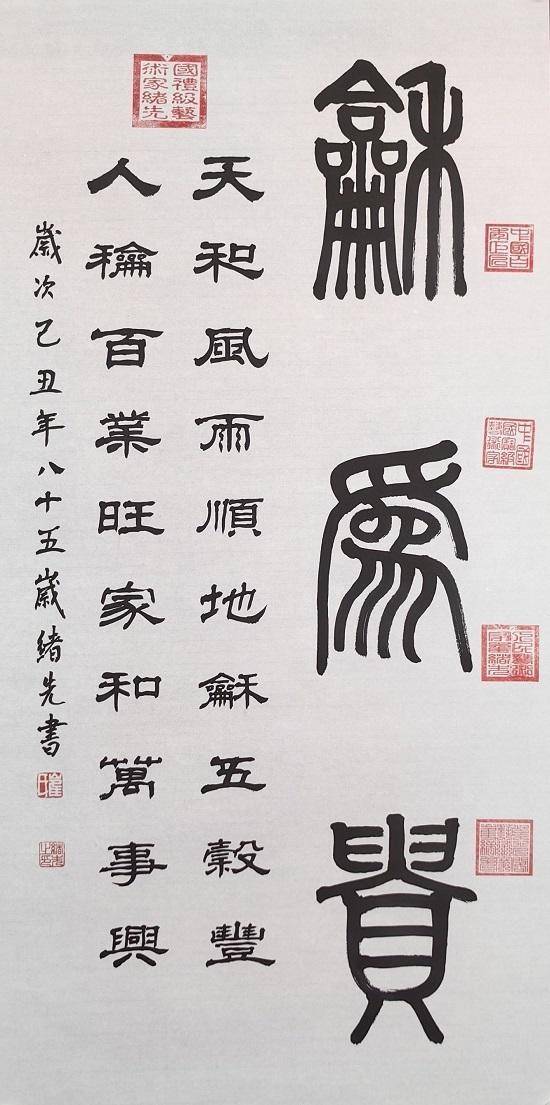 龢爲貴
天和風雨順地龢五穀豐
人稐百業旺家和萬事興
歲次己丑年八十五歲緒先書
國禮級藝術家緒先